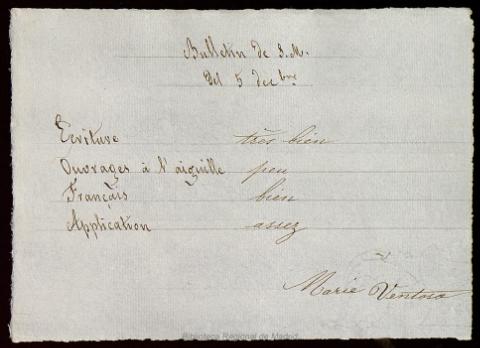 Bulletin de S.M.
Del 5 decbre
Ecriture très bien
Ouvrages à l'aiguille peu
Français bien
Application assez
Marie Ventosa
Biblioteca Regional de Madrid